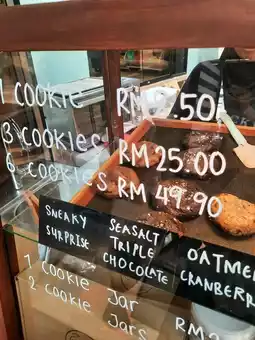 1 COOKIE RM 9.50
3 COOKIES RM 25.00
6 COOKIES RM 49.90
SNEAKY SURPRISE
SEASALT TRIPLE CHOCOLATE
OATMEAL CRANBERR
1 COOKIE Jar RM
2 COOKIE Jars